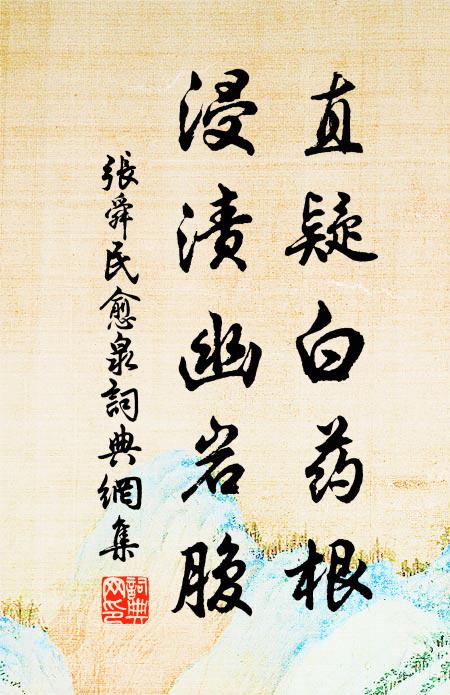 直疑白药根
浸渍幽岩腹
張舜民愈泉詞典網集
詞典网印